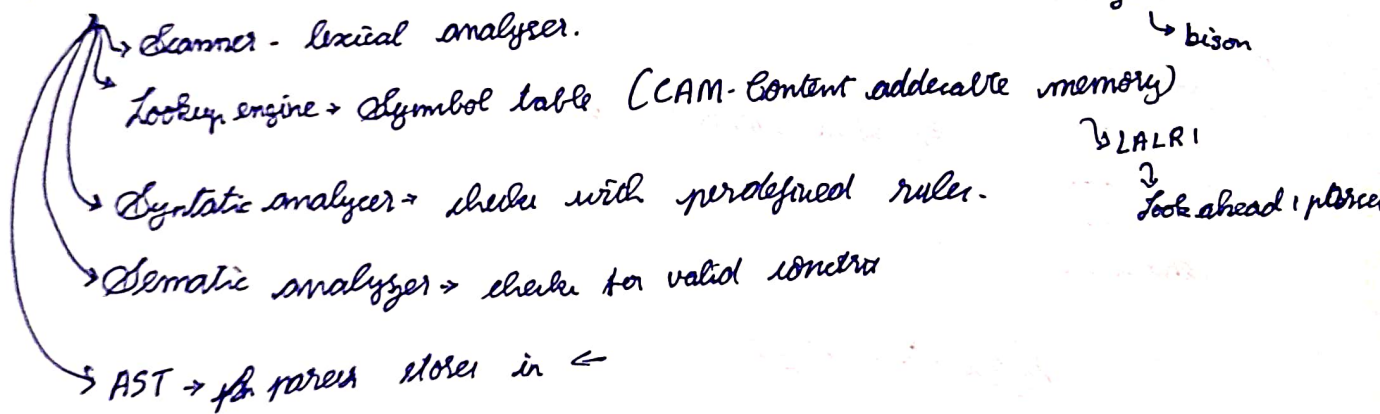 ↳ bison
→ Scanner - lexical analyser.
Lookup engine → Symbol table (CAM - Content addecable memory)
↳ LALR1
Look ahead 1 parser
→ Syntatic analyser → checks with perdefined rules.
→ Sematic analyzer → checks for valid constra
→ AST → parser stores in ←